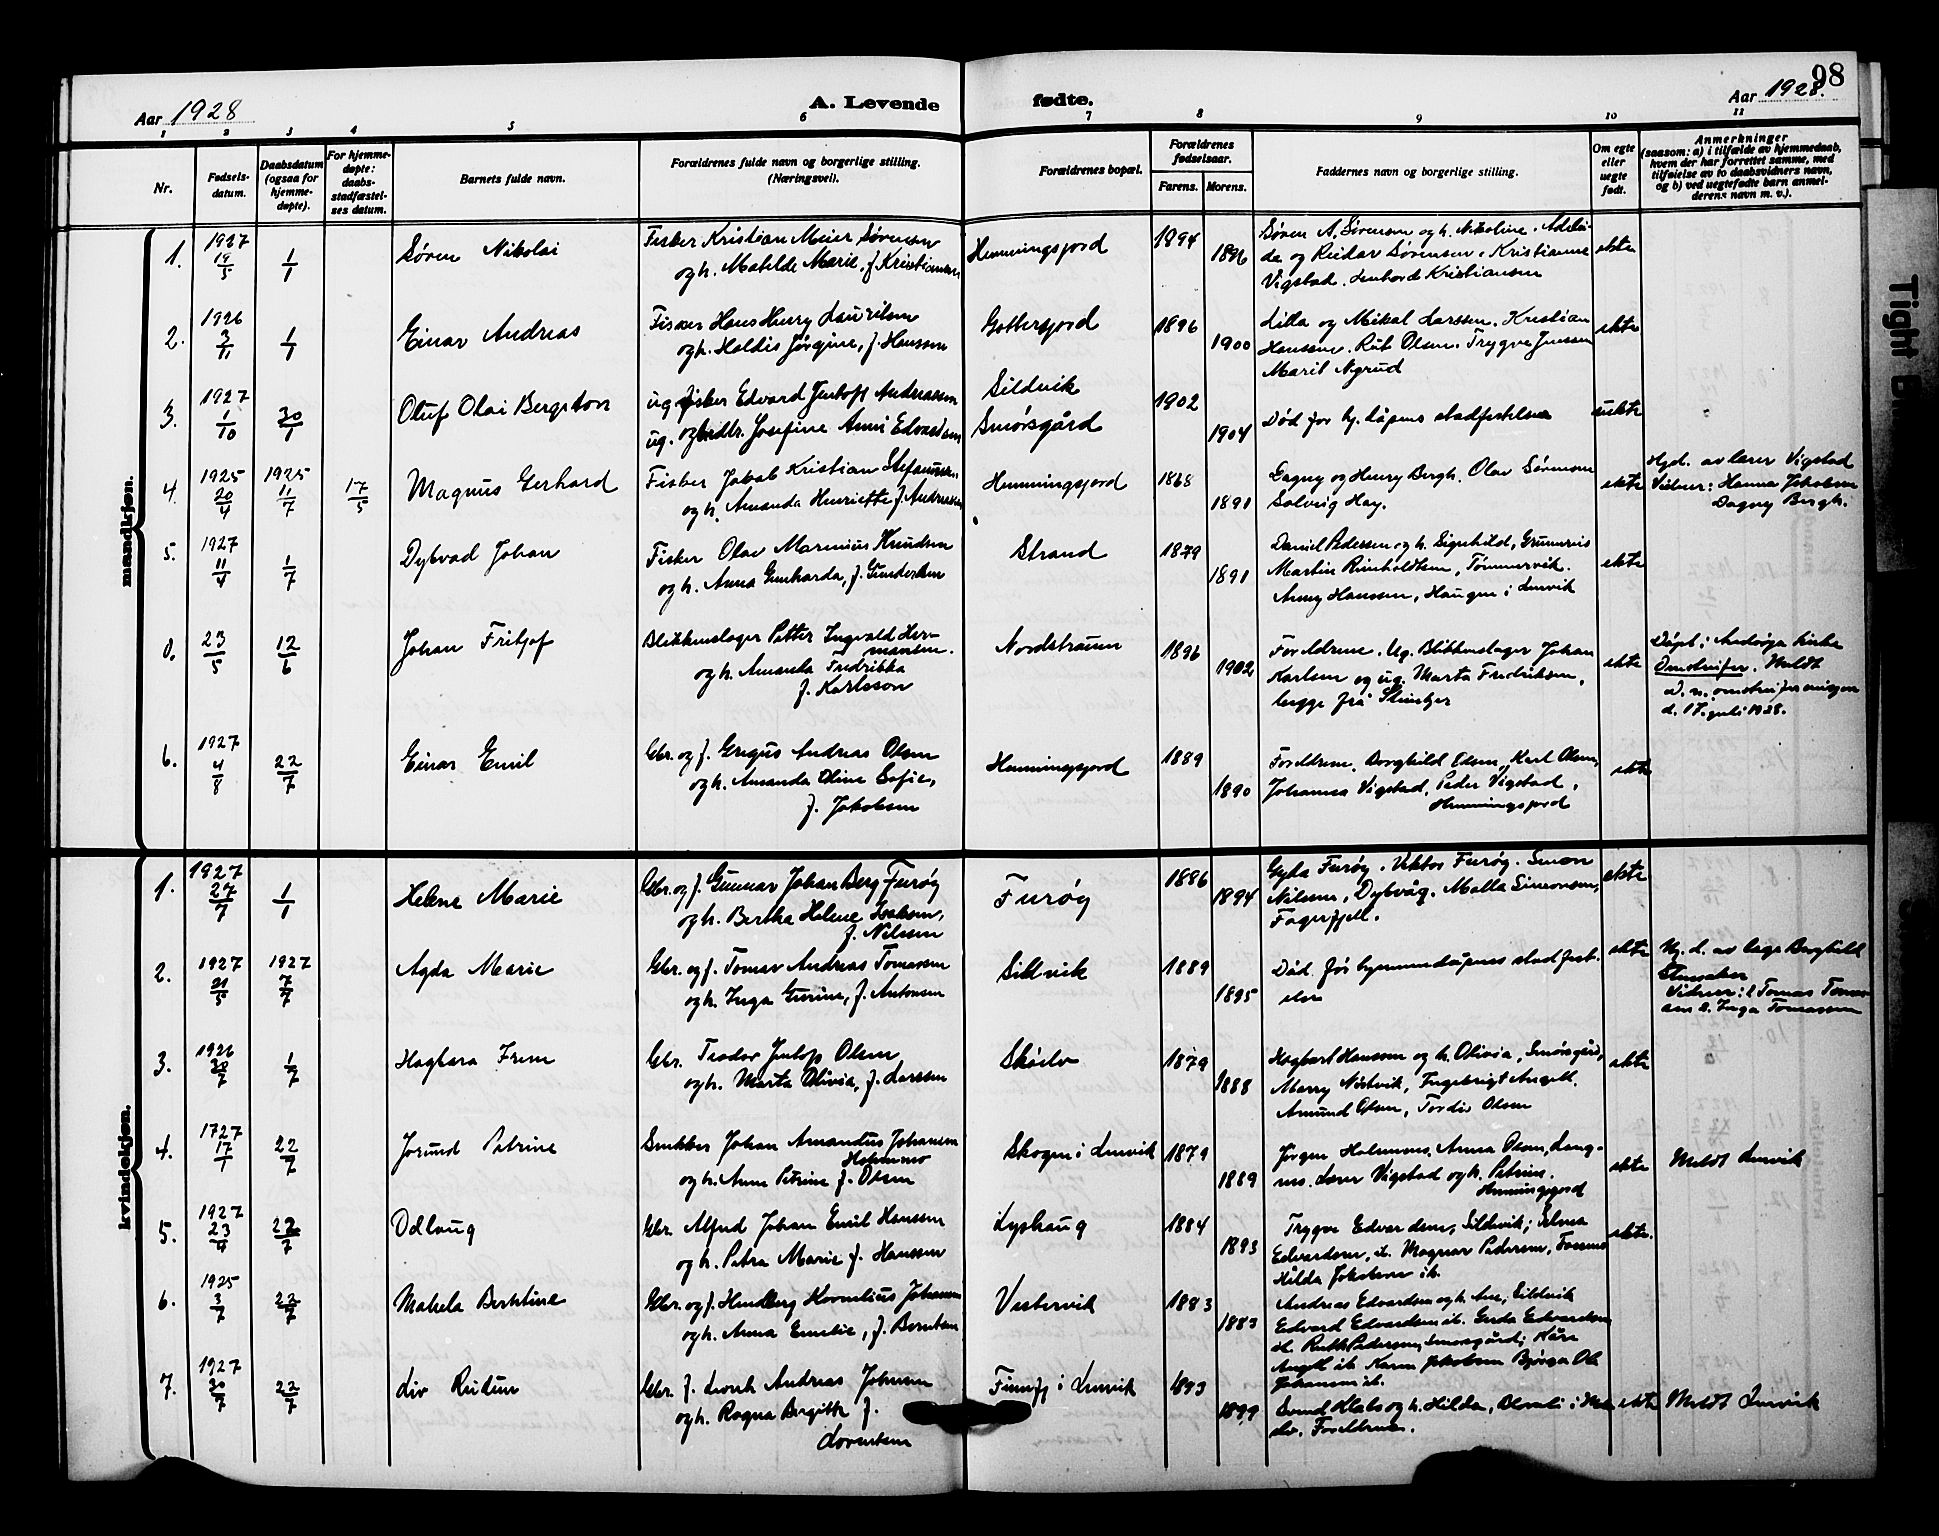 98
Aar 1928
A. Levende
fødte.
Aar 1928.
1 2 3 4 5 6 7 8 9 10 11
Nr.
Fødsels-
datum.
Daabsdatum
(ogsaa for
hjemme-
døpte).
For hjemme-
døpte:
daabs-
stadfæstel-
ses datum.
Barnets fulde navn.
Forældrenes fulde navn og borgerlige stilling.
(Næringsvei).
Forældrenes bopæl.
Forældrenes
fødselsaar.
Farens. Morens.
Faddernes navn og borgerlige stilling.
Om egte
eller
uegte
født.
Anmerkninger
(saasom: a) i tilfælde av hjemmedaab,
hvem der har forrettet samme, med
tilføielse av to daabsvidners navn,
og b) ved uegtefødte barn anmel-
derens navn m. v.).
mandkjøn.
1. 1927 19/5 1/1 Søren Nikolai
Fisker Kristian Meier Sørensen
og h. Matelde Marie, f. Kristiansen
Hemmingsjord 1894 1896
Søren A. Sørensen og h. Nikoline. Adelei-
de og Reidar Sørensen. Kristianne
Vigstad. Kristiansen
ekte
2. 1926 3/11 1/1 Einar Andreas
Fisker Hans Henry Lauritsen
og h. Haldis Jørgine, f. Hanssen
Gottersjord 1896 1900
Lilla og Mikal Larssen. Kristian
Hanssen. Rut Olsen. Trygve Jenssen
Marit Nygrud
ekte
3. 1927 1/10 30/1 Oluf Olai Bergston
ug. fisker Edvard Jentoft Andreassen
ug. og Josefine Anni Edvardsen
Sildvik
Smørsgård
1902 1904
Død før hj. dåpens stadfestelse
uekte
4. 1925 20/4 1925 11/7 17/5 Magnus Gerhard
Fisker Jakob Kristian Stefanussen
og h. Amanda Henriette f. Andreassen
Hemmingsjord 1868 1891
Dagny og Henry Bergh. Olav Sørensen
Solveig Hay.
ekte
Hjd. av lærer Vigstad
Vidner: Hanna Jakobsen
Dagny Bergh.
5. 1927 11/4 1/7 Dybvad Johan
Fisker Olav Marinius Knudsen
og h. Anna Gunharda, f. Gundersen
Strand 1879 1891
Daniel Pedersen og h. Signhild,
Martin Reinholdtsen, Tømmervik.
Anny Hanssen, Haugen i Lenvik
ekte
0. 23/5 12/6 Johan Fritjof
Blikkenslager Petter Ingvald Her-
mansen.
og h. Amanda Fredrikka
f. Karlsson
Nordstraum 1896 1902
Foreldrene. Ug. Blikkenslager Johan
Karlsen og ug. Marta Fredriksen,
begge frå Steinkjer
ekte
Døpt i Andørja kirke
Omstreifer. Meldt
d. n. omstreifermisjon
d. 17. juli 1928.
6. 1927 4/8 22/7 Einar Emil
Gbr. og f. Gregus Andreas Olsen
og h. Amanda Oline Sofie,
f. Jakobsen
Hemmingsjord 1889 1890
Foreldrene. Borghild Olsen, Karl Olsen,
Johanna Vigstad, Peder Vigstad,
Hemmingsjord
ekte
kvindekjøn.
1. 1927 27/7 1/1 Helene Marie
Gbr. og f. Gunnar Johan Berg Furøy
og h. Bertha Helene Isaksen,
f. Nilssen
Furøy 1886 1894
Gyda Furøy. Viktor Furøy. Simon
Nilssen, Dybvåg. Malla Simonsen,
Fagerfjell.
ekte
2. 1927 21/5 1927 7/7 Agda Marie
Gbr. og f. Tomas Andreas Tomassen
og h. Inga Gurine, f. Antonsen
Sildvik 1889 1895
Død før hjemmedåpens stadfest-
else
ekte
Hj. d. av Borghild
Vidner: 1 Tomas Tomas-
sen 2. Inga Tomassen
3. 1926 1/7 Hagbara Irene
Gbr. Teodor Jentoft Olsen
og h. Marta Olivia, f. Larssen
1879 1888
Hagbart Hanssen og h. Olivia, Smørsgård,
Marry Nordvik, Ingebrigt Angell.
Amund Olsen, Tordis Olsen
ekte
4. 1927 17/1 22/7 Jorund Petrine
Snekker Johan Amandus Johansen
Holmmo
og h. Anna Petrine f. Olsen
Skogen i Lenvik 1879 1889
Jørgen Holmmo, Anna Olsen, Lang-
nes. Lærer Vigstad og h. Petrine.
Hemmingsjord
ekte
Meldt Lenvik
5. 1927 22/7 Odlaug
Gbr. Alfred Johan Emil Hanssen
og h. Petra Marie f. Hanssen
Lyshaug 1884 1893
Trygve Edvardsen, Sildvik; Selma
Edvardsen, it. Magnar Pedersen,
Hilda Jakobsen it.
ekte.
6. 1925 3/7 22/7 Makela Berntine
Gbr. og f. Hendberg Kornelius Johansen
og h. Anna Emilie, f. Berntsen
Vestervik 1883 1883
Andreas Edvardsen og h. Ane, Sildvik
Edvard Edvardsen it. Gerda Edvardsen
it. Ruth Pedersen, Smørsgård; Kåre
Angell it. Karen Jakobsen
Johansen it.
7. 1927 22/7 Liv Reidun
Gbr. f. Andreas Johnsen
og h. Ragna Bergitte f.
Lorentsen
i Lenvik 1893 1899
og h. Hilda,
Foreldrene.
ekte
Meldt Lenvik
Tight B